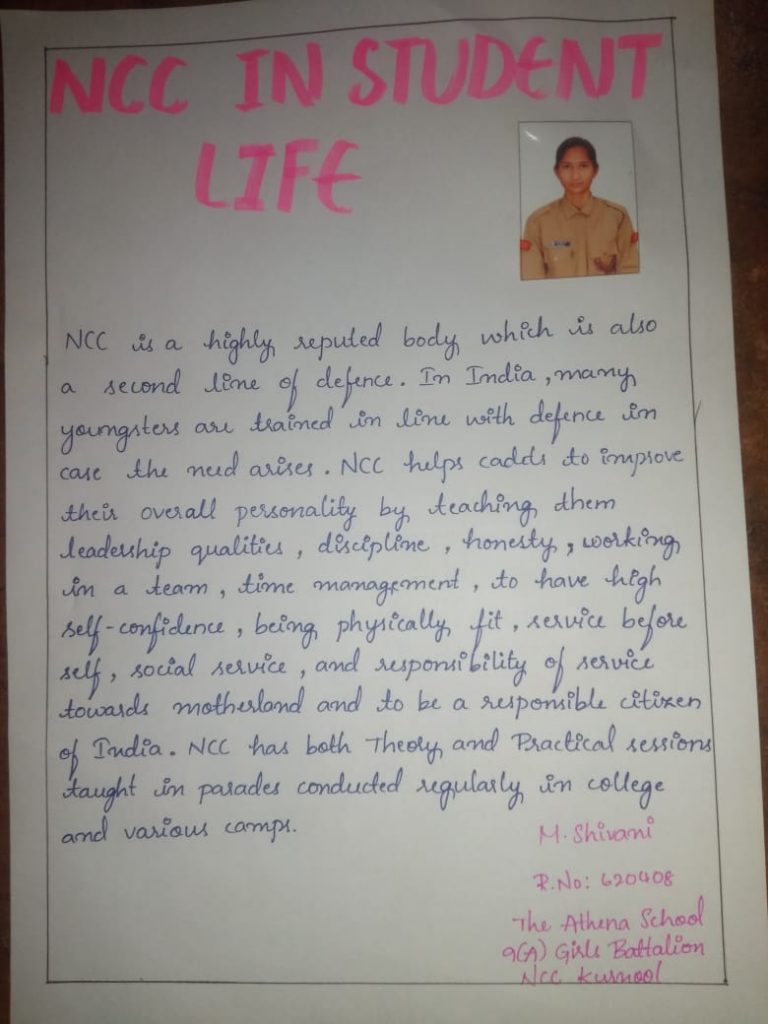 NCC IN STUDENT
LIFE
NCC is a highly reputed body which is also
a second line of defence. In India, many
youngsters are trained in line with defence in
case the need arises. NCC helps cadds to improve
their overall personality by teaching them
leadership qualities, discipline, honesty, working
in a team, time management, to have high
self-confidence, being physically fit, service before
self, social service, and responsibility of service
towards motherland and to be a responsible citizen
of India. NCC has both Theory and Practical sessions
taught in parades conducted regularly in college
and various camps.
M. Shivani
R.No: 620408
The Athena School
9(A) Girls Battalion
NCC Kurnool